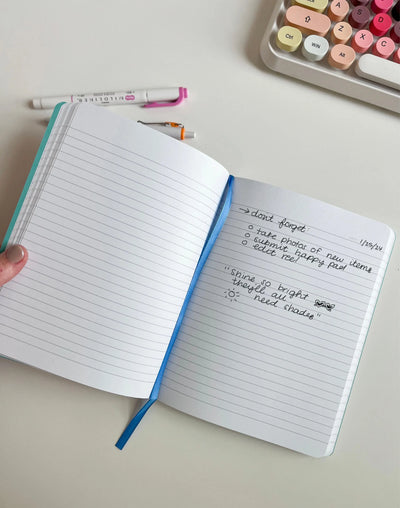 MILDLINER
Ctrl
Win
Alt
A
S
D
Z
X
C
1/25/24
→ don't forget:
o take photos of new items
o submit happy post
o edit reel
"Shine so bright
they'll all
need shades"